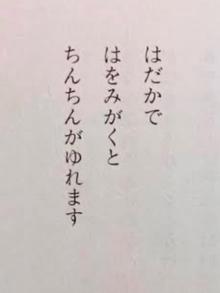 はだかで
はをみがくと
ちんちんがゆれます